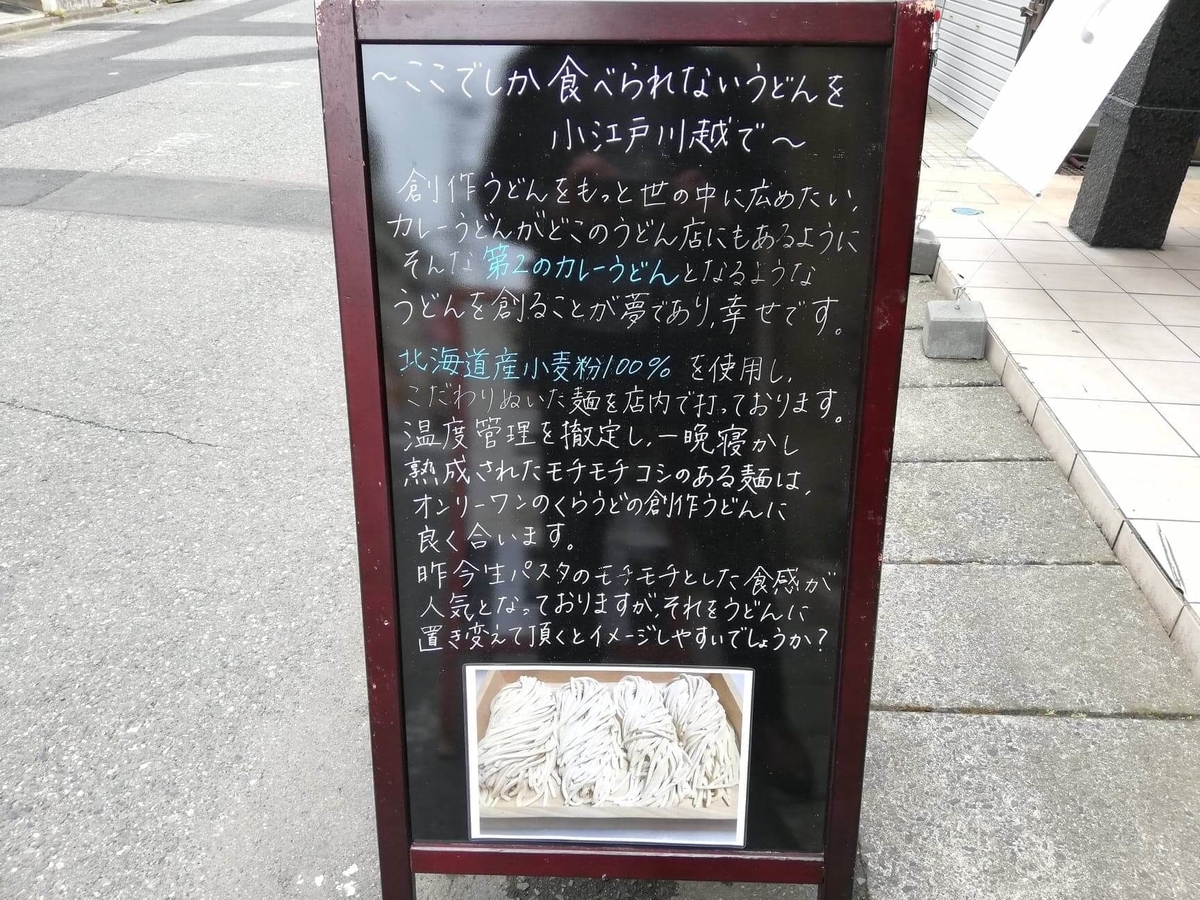 ～ここでしか食べられないうどんを
小江戸川越で～
創作うどんをもっと世の中に広めたい,
カレーうどんがどこのうどん店にもあるように
そんな第2のカレーうどんとなるような
うどんを創ることが夢であり,幸せです。
北海道産小麦粉100% を使用し,
こだわりぬいた麺を店内で打っております。
温度管理を撤定し,一晩寝かし
熟成されたモチモチコシのある麺は,
オンリーワンのくらうどの創作うどんに
良く合います。
昨今生パスタのモチモチとした食感が
人気となっておりますが,それをうどんに
置き変えて頂くとイメージしやすいでしょうか?